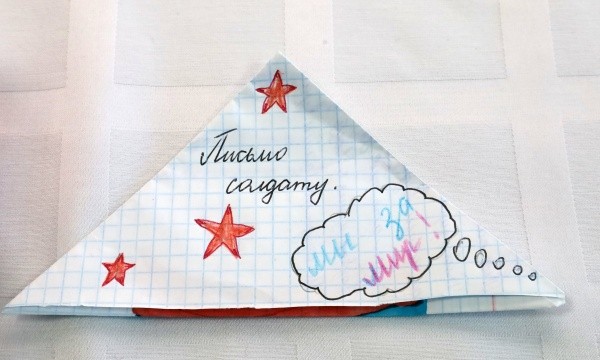 Письмо
солдату.
мы за
мир!